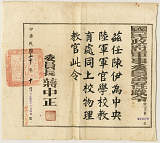 國民政府軍事委員會委令
茲任陳伊為中央
陸軍軍官學校教
育處同上校物理
教官此令
委員長蔣中正
中華民國